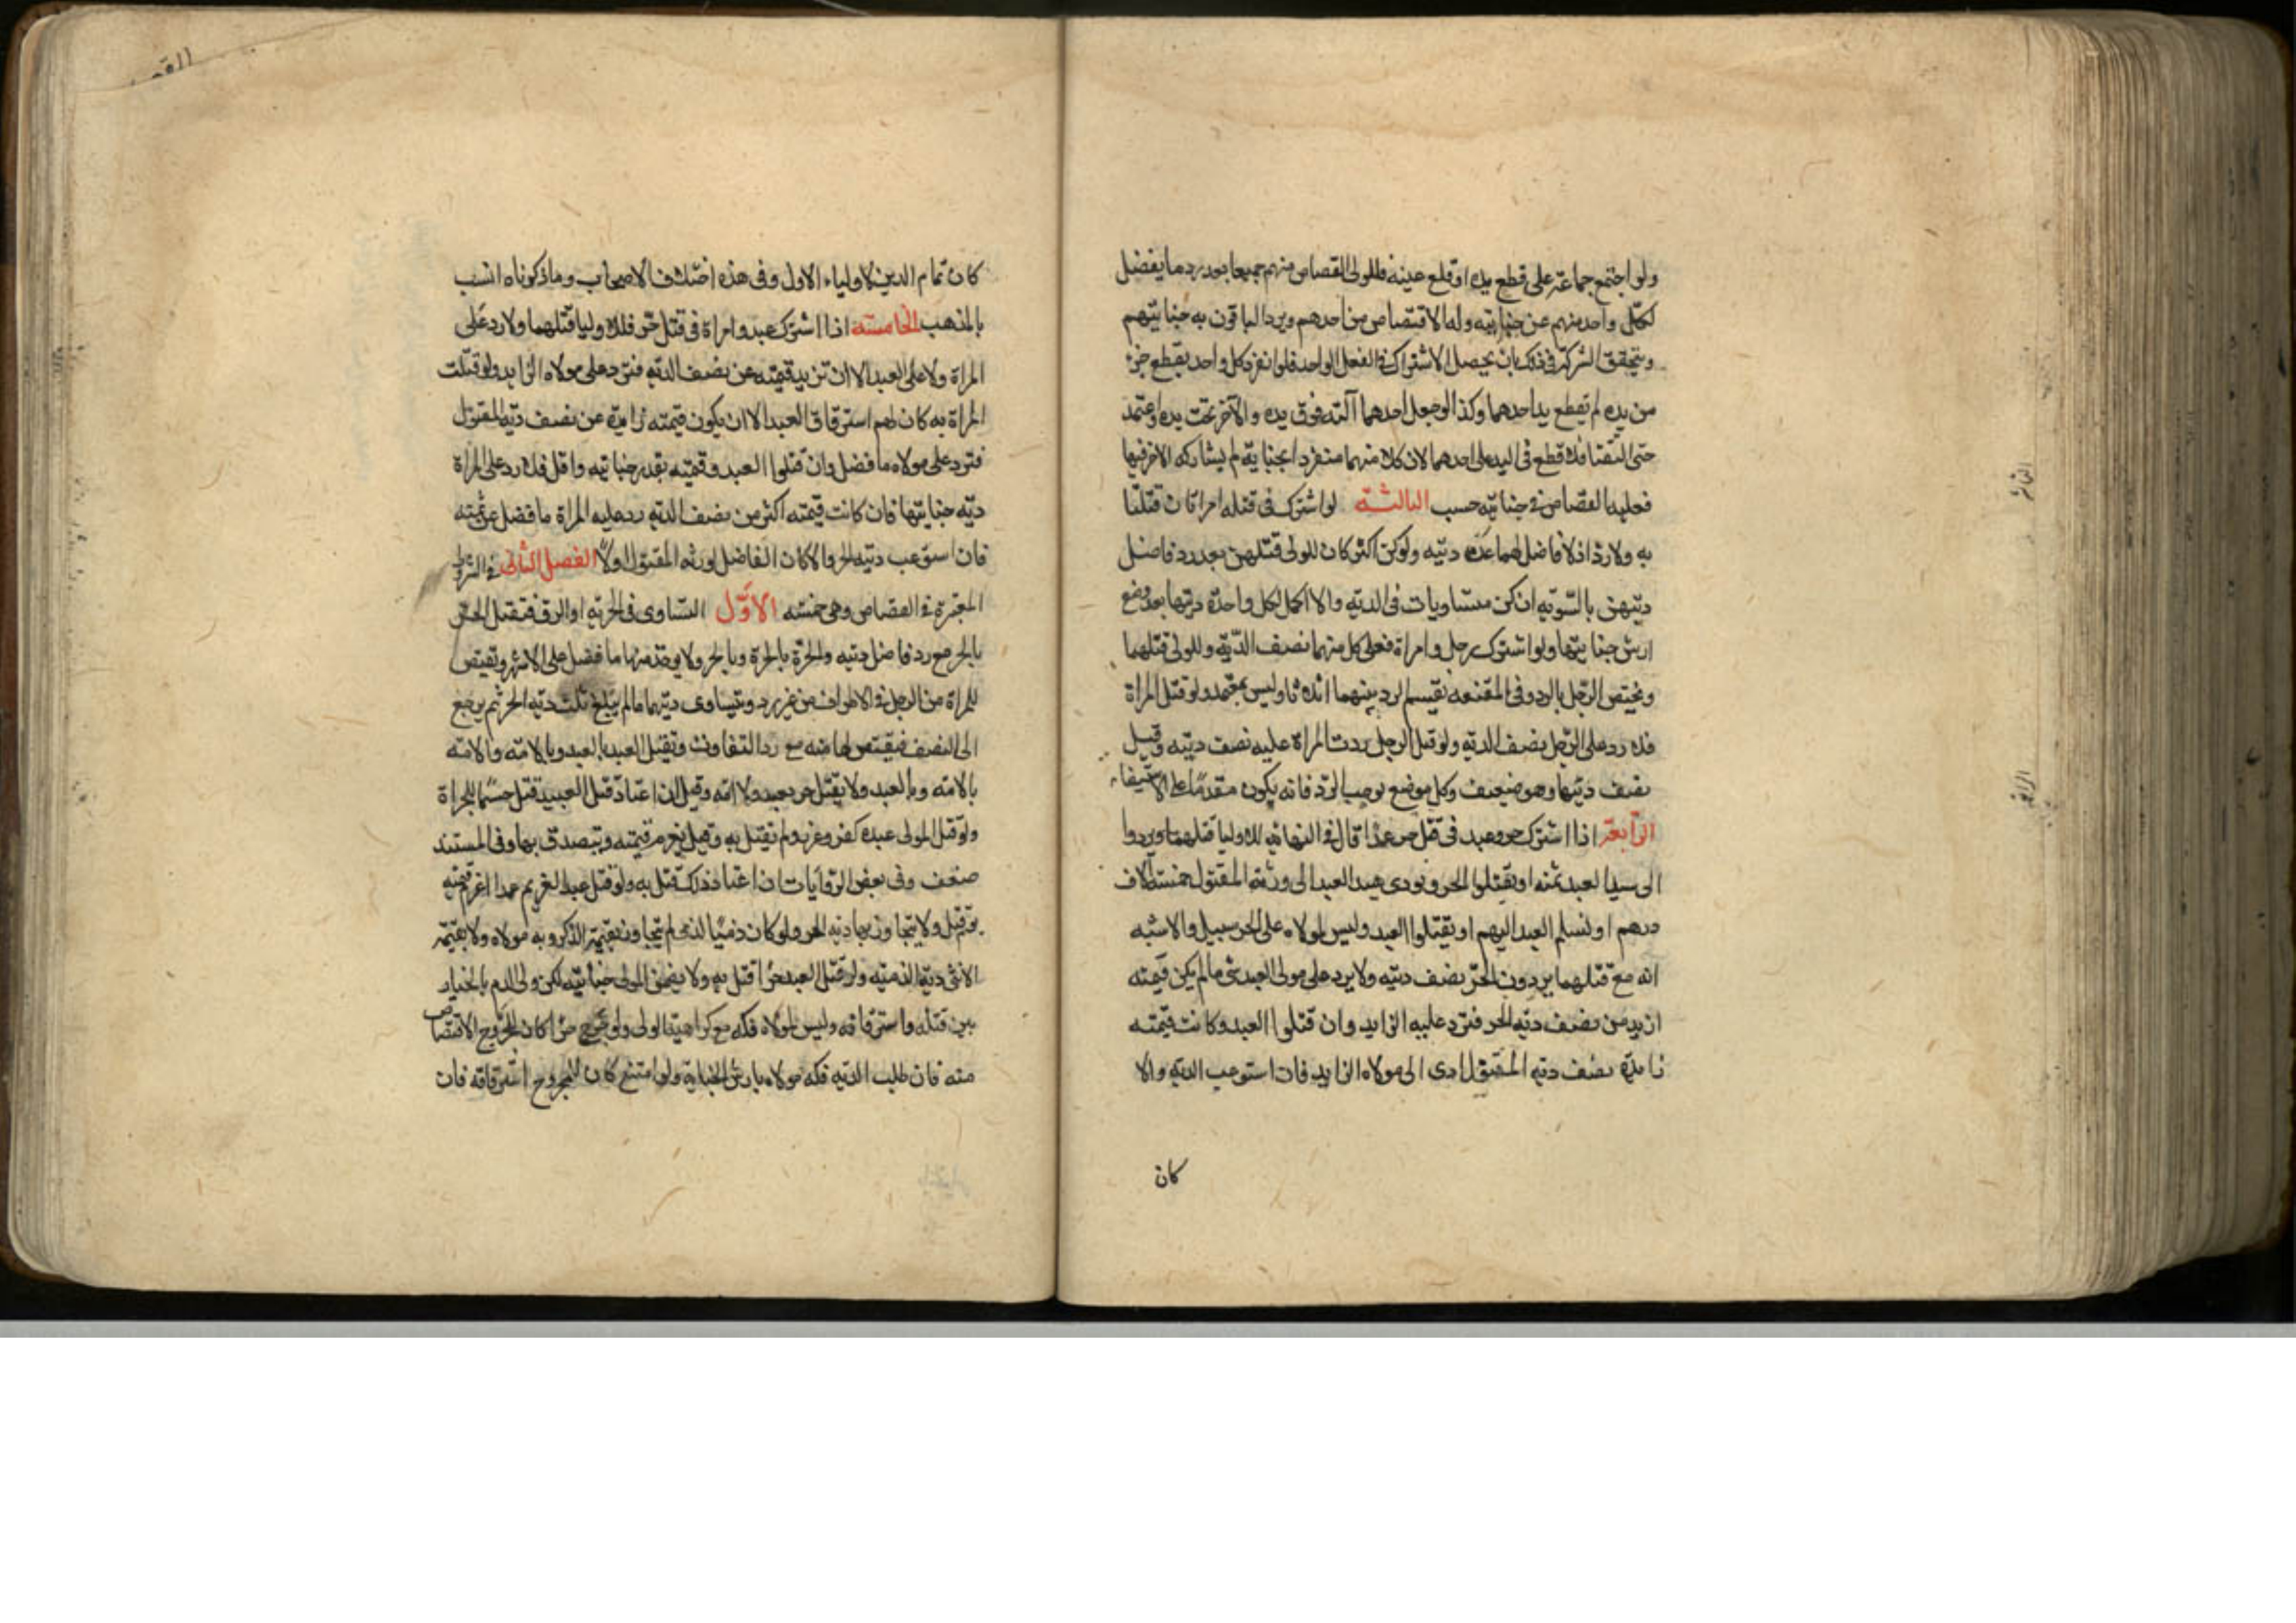 ولو اجتمع جماعة على قطع يده او قلع عينه فللولى القصاص منهم جميعا بعد رد ما يفضل
لكل واحد منهم عن جنايته وله الاقتصاص من احدهم ويرد الباقون به جنايتهم
ويتحقق الشركة فى ذلك بان يحصل الاشتراك فى الفعل الواحد فلو انفرد كل واحد بقطع جزء
من يده لم تقطع يد احدهما وكذا لو جعل احدهما آلته فوق يده والآخر تحت يده واعتمد
حتى التقتا فلا قطع فى اليد على احدهما لان كلا منهما منفرد بجناية لم يشاركه الاخر فيها
فعليه القصاص فى جنايته حسب الثالثة لو اشترك فى قتله امراتان قتلتا
به ولا رد اذ لا فاضل لهما عن ديته ولو كن اكثر كان للولى قتلهن بعد رد فاضل
ديتهن بالسوية ان كن متساويات فى الدية والا اكمل لكل واحدة ديتها بعد وضع
ارش جنايتها ولو اشترك رجل وامراة فعلى كل منهما نصف الدية وللولى قتلهما
ويختص الرجل بالرد وفى المقنعه يقسم الرد بينهما اثلاثا وليس بمعتمد ولو قتل المراة
فلا رد وعلى الرجل نصف الدية ولو قتل الرجل ردت المراة عليه نصف ديته وقيل
نصف ديتها وهو ضعيف وكل موضع يوجب الرد فانه يكون مقدما على الاستيفاء
الرابعة اذا اشترك حر وعبد فى قتل حر عمدا قال فى النهاية للاوليا قتلهما ويردوا
الى سيد العبد ثمنه او يقتلوا الحر ويودى سيد العبد الى ورثة المقتول خمسة الاف
درهم او يسلم العبد اليهم او يقتلوا العبد وليس لمولاه على الحر سبيل والاشبه
انه مع قتلهما يردون الحر نصف ديته ولا يرد على مولى العبد شى ما لم يكن قيمته
ازيد من نصف دية الحر فترد عليه الزايد وان قتلوا العبد وكانت قيمته
زايدة نصف دية المقتول ادى الى مولاه الزايد فان استوعب الدية والا
كان
كان تمام الدية لاولياء الاول وفى هذه اختلاف الاصحاب وما ذكرناه انسب
بالمذهب الخامسة اذا اشترك عبد وامراة فى قتل حر فللاوليا قتلهما ولا رد على
المراة ولا على العبد الا ان تزيد قيمته عن نصف الدية فترد على مولاه الزايد ولو قتلت
المراة به كان لهم استرقاق العبد الا ان يكون قيمته زايدة عن نصف دية المقتول
فترد على مولاه ما فضل وان قتلوا العبد وقيمته بقدر جنايته او اقل فلا رد على المراة
دية جنايتها فان كانت قيمته اكثر من نصف الدية رد عليه المراة ما فضل عن قيمته
فان استوعب دية الحر والا كان الفاضل لورثة المقتول اولا الفصل الثانى فى الشروط
المعتبرة فى القصاص وهى خمسة الاول التساوى فى الحرية او الرق فيقتل الحر
بالحر مع رد فاضل ديته والحرة بالحرة وبالحر ولا يوخذ منها ما فضل على الاشهر ويقتص
للمراة من الرجل فى الاطراف من غير رد وتتساوى ديتهما ما لم يبلغ ثلث دية الحر ثم يرجع
الى النصف فيقتص لها منه مع رد التفاوت ويقتل العبد بالعبد وبالامة والامة
بالامة وبالعبد ولا يقتل حر بعبد ولا امة وقيل ان اعتاد قتل العبيد قتل حسما للجراة
ولو قتل المولى عبده كفر وعزر ولم يقتل به وقيل يغرم قيمته ويتصدق بها وفى المستند
ضعف وفى بعض الروايات ان اعتاد ذلك قتل به ولو قتل عبدا لغيره عمدا اغرم قيمته
يوم قتل ولا يتجاوز بها دية الحر ولو كان ذميا لذمى لم يتجاوز بقيمة الذكر دية مولاه ولا بقيمة
الانثى دية الذمية ولو قتل العبد حرا قتل به ولا يضمن المولى جنايته لكن ولى الدم بالخيار
بين قتله واسترقاقه وليس لمولاه فكه مع كراهية الولى ولو جرح حرا كان للمجروح الاقتصاص
منه فان طلب الدية فكه مولاه بارش الجناية ولو امتنع كان للمجروح استرقاقه فان